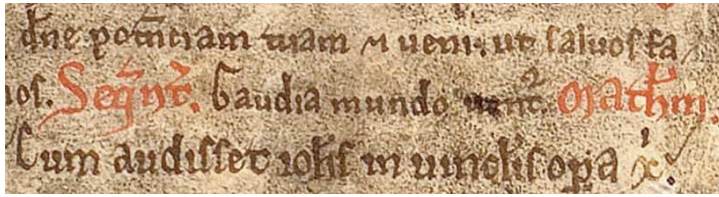 dn̄e potēciam tuam ⁊ veni. ut saluos fa
nos. Seq̄nt̄. Gaudia mundo uent̾. Orathm̄.
Cum audisset ioh̄s in uincl̄is oꝑa xⁱ.